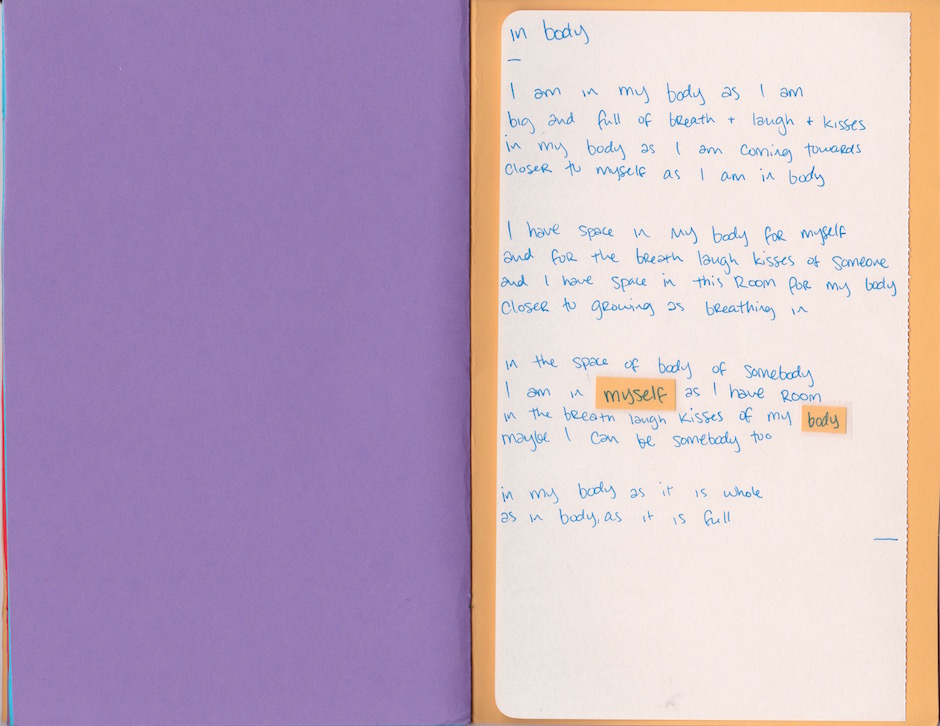 in body
–
I am in my body as I am
big and full of breath + laugh + kisses
in my body as I am coming towards
closer to myself as I am in body
I have space in my body for myself
and for the breath laugh kisses of someone
and I have space in this room for my body
closer to growing as breathing in
in the space of body of somebody
I am in myself as I have room
in the breath laugh kisses of my body
maybe I can be somebody too
in my body as it is whole
as in body, as it is full
—